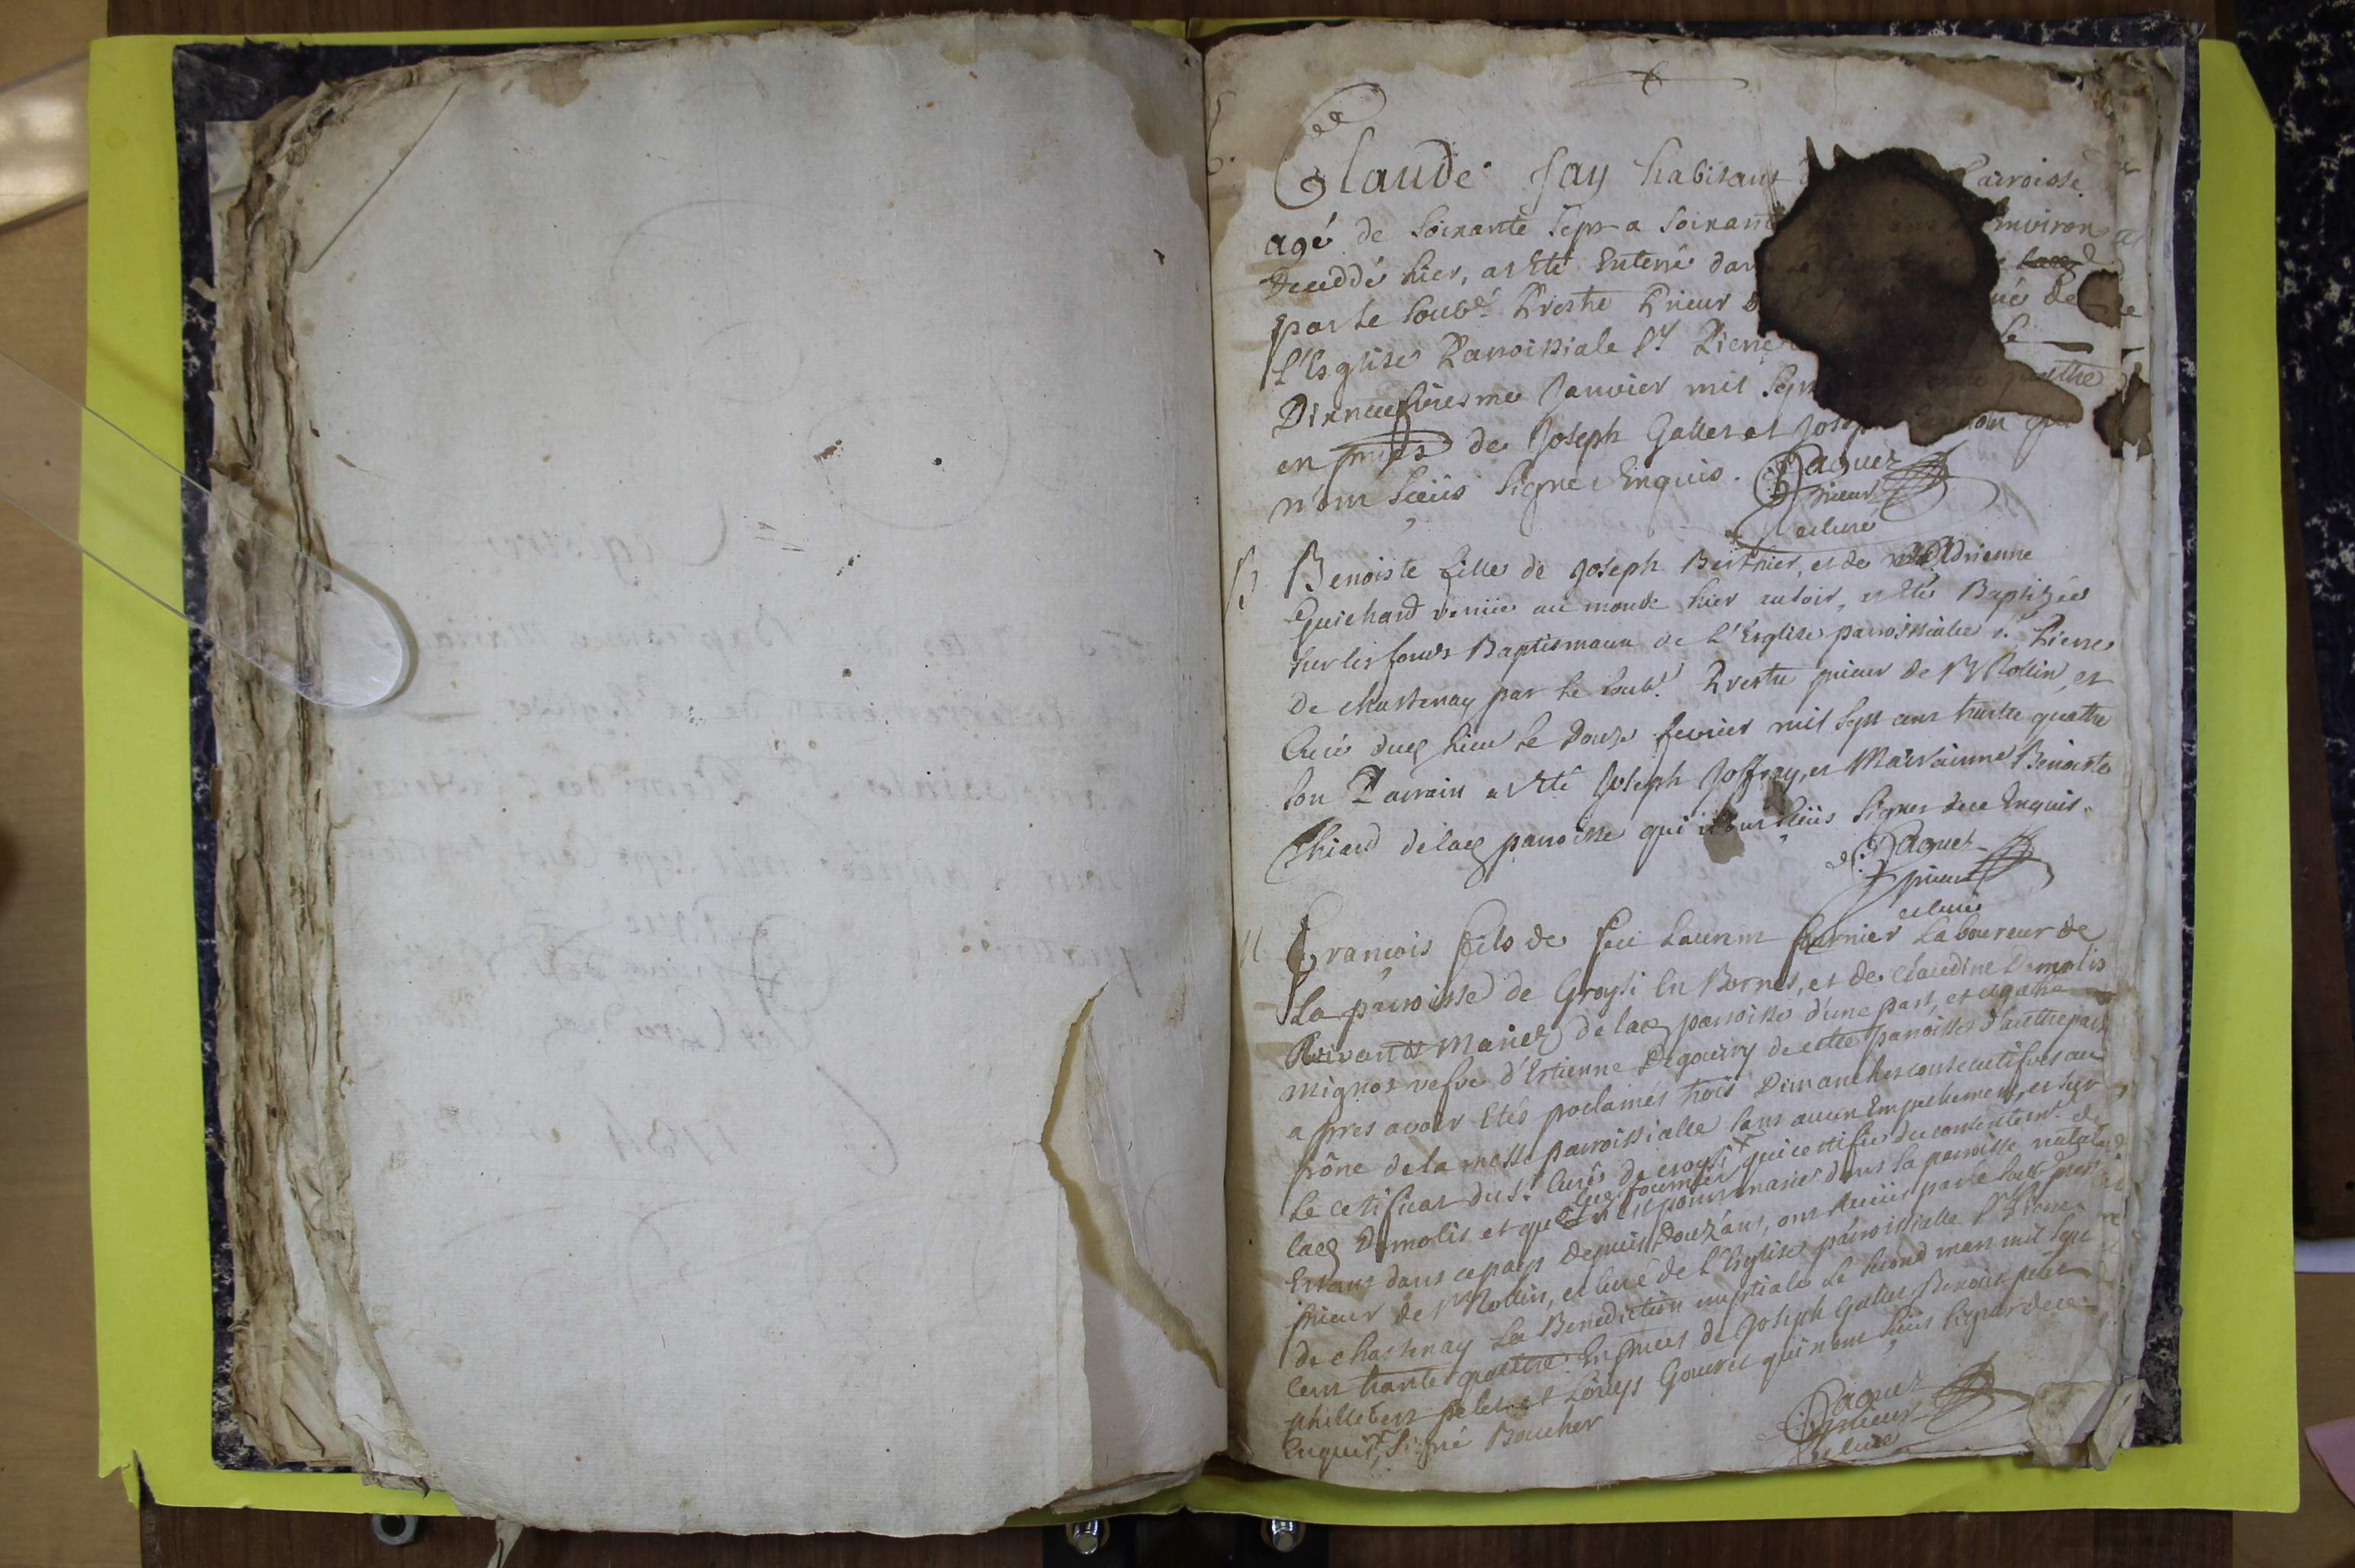 Claude Jay habitant Parroisse
agé de soixante sept a soixante environ
Deceddé hier, at eté enterré dans
par le soubé Prestre Prieur curé de
l'Esglise Parroissiale St Pierre le
Dixneufviesme Janvier mil sept trente quatre
en pnces de Joseph Galles et Joseph qui
n'ont sceüs signer Enquis. Paquet
prieur
et curé
B Benoiste fille de Joseph Berthier, et de Adrienne
Guichard venüe au monde hier au soir, at eté Baptizée
sur les fonds Baptismaux de l'Esglise parroissialle s. Pierre
de chastenay par le soubé Prestre prieur de St Rollin, et
Curé dud lieu le Douze fevrier mil sept cens trante quatre
son Parrain at eté Joseph Joffray, et Marrainne Benoiste
Chiard de lad parroisse qui n'ont sceüs signer de ce Enquis.
Paquet
prieur
et curé
M François fils de feu Laurent fournier Laboureur de
La parroisse de Groysi en Bornes, et de Claudine Demolis
vivants Mariez de lad parroisse d'une part, et Agathe
mignot vefve d'Estienne Degourry de cette parroisse d'autre part
appres avoir etés proclamés trois Dimanches consecutifves au
prône de la messe parroissialle sans aucun Empechement, et sur
Le certificat du Sr Curé de Groysi qui certifie du consentemt de
lad Demolis et que led fournier n'est point marié dans sa parroisse natale
Estant dans ce pays depuis douz'ans, ont receüs par le soubé prestre
prieur de St Rollin, et curé de L'Esglise parroissialle St Pierre
de chastenay La Benediction nuptiale Le second mars mil sept
cens trante quatre En pnces de Joseph Galles Benoit pelet
philibert pelet et Loüys Gouret qui n'ont sceüs signer de ce
Enquis, signé Boucher
Paquet
prieur
et curé